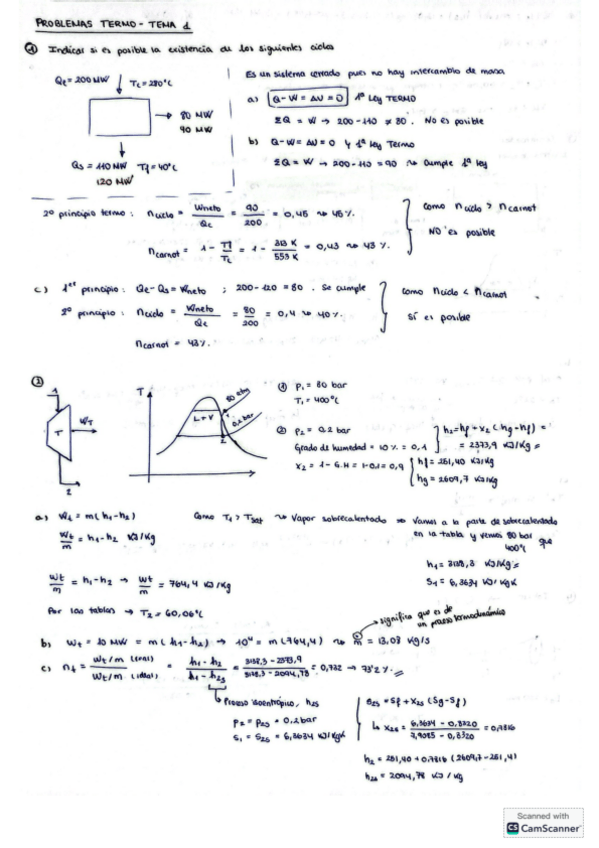 PROBLEMAS TERMO - TEMA 1
① Indicar si es posible la existencia de los siguientes ciclos
Qc = 200 MW
Tc = 280°C
80 MW
90 MW
Qs = 110 MW Tf = 40°C
120 MW
Es un sistema cerrado pues no hay intercambio de masa
a) Q - W = ΔU = 0 1ª Ley TERMO
ΣQ = W → 200 - 110 ≠ 80. No es posible
b) Q - W = ΔU = 0 y 1ª Ley Termo
ΣQ = W → 200 - 110 = 90 ↝ Cumple 1ª ley
2º principio termo: ηciclo = Wneto/Qc = 90/200 = 0,45 ↝ 45%
ηcarnot = 1 - Tf/Tc = 1 - 313 K/553 K = 0,43 ↝ 43%
Como ηciclo > ηcarnot
NO es posible
c) 1er principio: Qc - Qs = Wneto ; 200 - 120 = 80. Se cumple
2º principio: ηciclo = Wneto/Qc = 80/200 = 0,4 ↝ 40%
ηcarnot = 43%
como ηciclo < ηcarnot
SÍ es posible
②
1
T
WT
2
T
L+V
80 bar
0,2 bar
2
① P1 = 80 bar
T1 = 400°C
② P2 = 0.2 bar
Grado de humedad = 10% = 0,1
x2 = 1 - G.H = 1 - 0.1 = 0,9
h2 = hf + x2 (hg - hf) =
= 2373,9 KJ/Kg
hf = 251,40 KJ/Kg
hg = 2609,7 KJ/Kg
a) Wt = m (h1 - h2)
Wt/m = h1 - h2 KJ/Kg
Como T1 > Tsat ↝ Vapor sobrecalentado ⇒ Vamos a la parte de sobrecalentado
en la tabla y vemos 80 bar que
400°C
h1 = 3138,3 KJ/Kg
S1 = 6,3634 KJ/KgK
Wt/m = h1 - h2 → Wt/m = 764,4 KJ/Kg
Por las tablas → T2 = 60,06°C
significa que es de un proceso termodinámico
b) Wt = 10 MW = m (h1 - h2) → 10⁴ = m (764,4) ↝ ṁ = 13,08 Kg/s
c) ηt = Wt/m (real) / Wt/m (ideal) = h1 - h2 / h1 - h2s = 3138,3 - 2373,9 / 3138,3 - 2094,78 = 0,732 → 73'2%
Proceso isoentrópico, h2s
P2 = P2s = 0,2 bar
S1 = S2s = 6,3634 KJ/KgK
S2s = Sf + x2s (Sg - Sf)
↳ x2s = 6,3634 - 0,8320 / 7,9085 - 0,8320 = 0,7816
h2 = 251,40 + 0,7816 (2609,7 - 251,4)
h2s = 2094,78 KJ/Kg
Scanned with
CS CamScanner